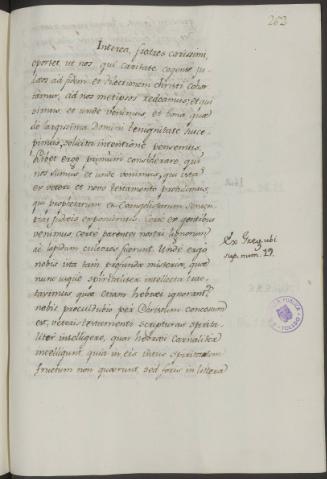 263
Interea, fratres carissimi,
oportet ut nos qui caritate cogente ju-
daos ad fidem et dilectionem christi cohor
tamur, ad nos metipsos redeamus, et qui
simus, et unde venimus, et bona quæ
de larguissima Domini benignitate susce-
pimus, solicita intentione pensemus.
Libet ergo primum considerare, qui
nos sumus, et unde venimus, qui ista
ex veteri et novo testamento protulimus,
qui prophetarum et Evangelistarum senten
tias fideles exponimus. Certe ex gentibus
venimus certe parentes nostri lignorum
ac lapidum cultores fuerunt. Unde ergo
nobis ista tam profunda misteria, quæ
nunc usque spiritaliter intellecta trac-
tavimus quæ etiam hebræi ignorant,
nobis procul dubio per Christum concessum
est, veteris testamenti scripturas spirita
liter intelligere, quas hebræi carnaliter
intelligunt, quia in eis intus spiritalem
fructum non quærunt, sed foris in littera
Ex Greg. ubi
sup. num. 19.
TOLEDO